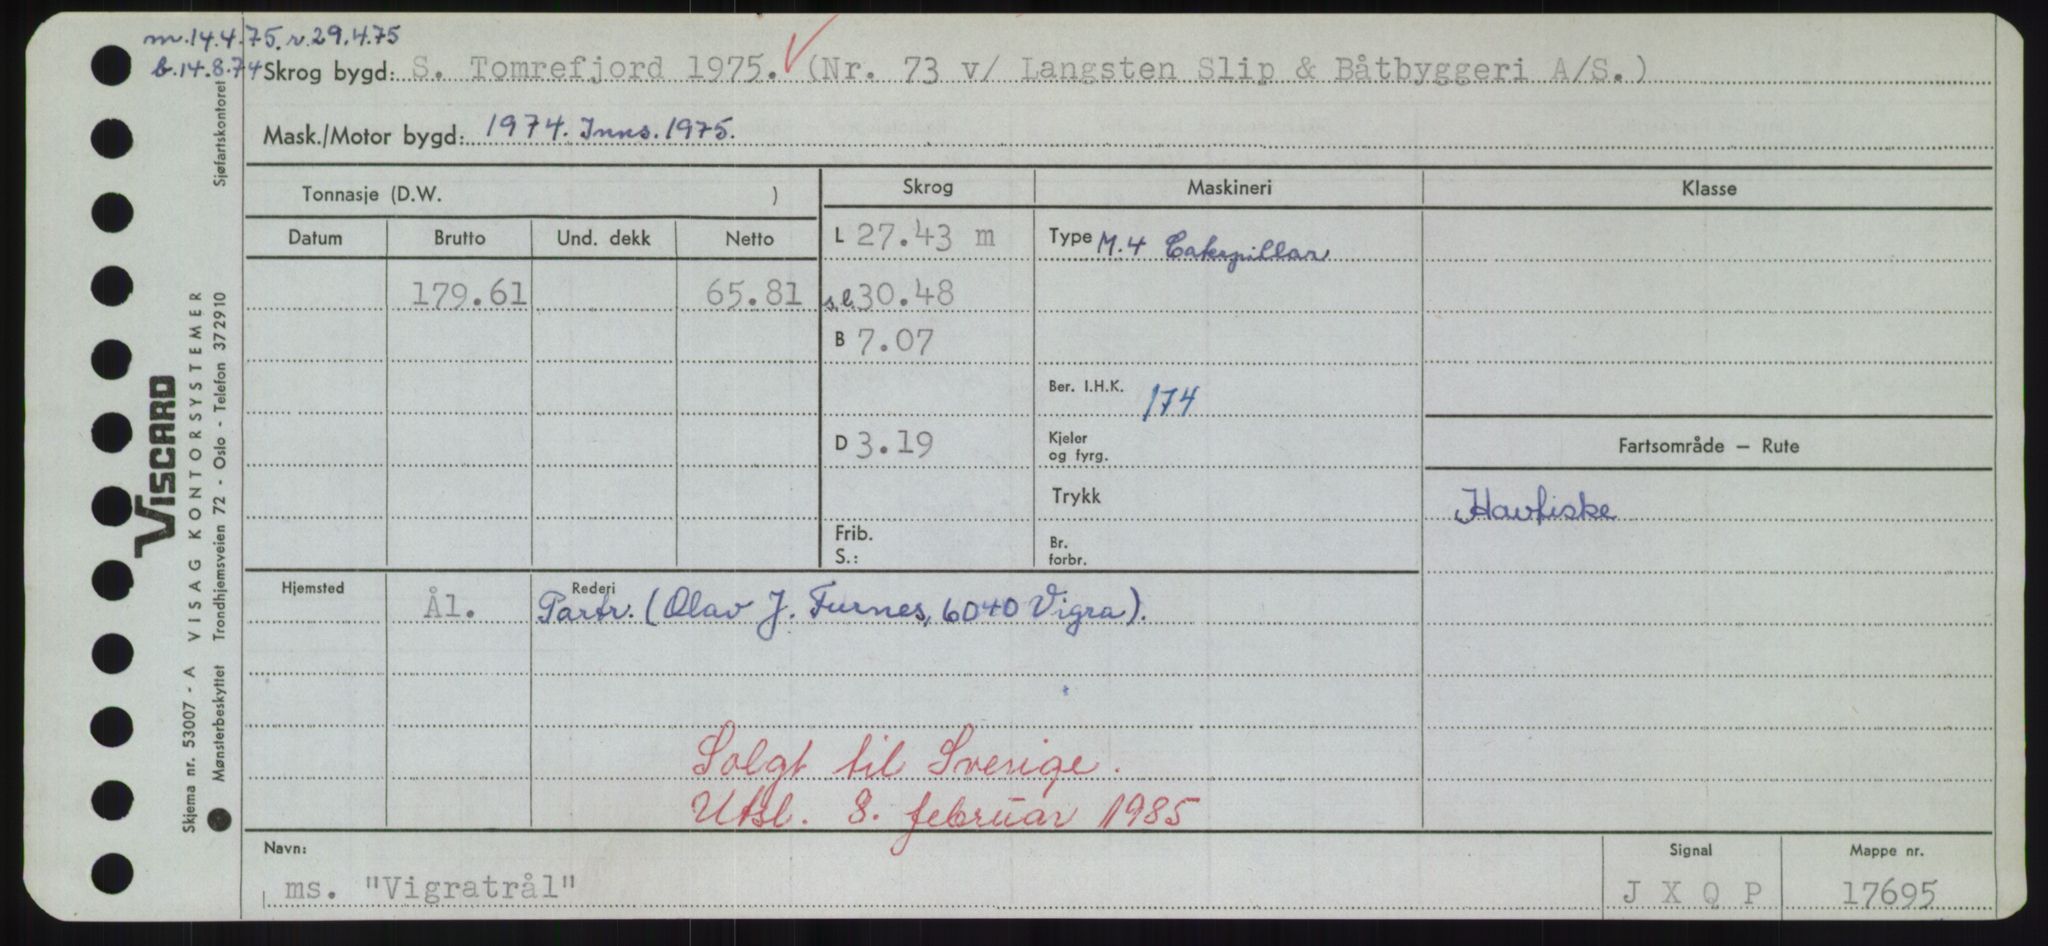 m.14.4.75. r.29.4.75
b.14.8.74 Skrog bygd: S. Tomrefjord 1975. (Nr. 73 v/ Langsten Slip & Båtbyggeri A/S.)
Mask./Motor bygd: 1974. Inns. 1975.
Tonnasje (D.W. ) Skrog Maskineri Klasse
Datum Brutto Und. dekk Netto L 27.43 m Type M.4 Caterpillar
179.61 65.81 s.l. 30.48
B 7.07
Ber. I.H.K. 174
D 3.19 Kjeler og fyrg. Fartsområde — Rute
Trykk Havfiske
Frib. S.: Br. forbr.
Hjemsted Ål. Rederi Partr. (Olav J. Furnes, 6040 Vigra).
Solgt til Sverige.
Utsl. 8. februar 1985
Navn: Signal Mappe nr.
ms. "Vigratrål" J X Q P 17695
VISCARD
Skjema nr. 53007 - A VISAG KONTORSYSTEMER
Mønsterbeskyttet Trondhjemsveien 72 - Oslo - Telefon 372910 Sjøfartskontoret